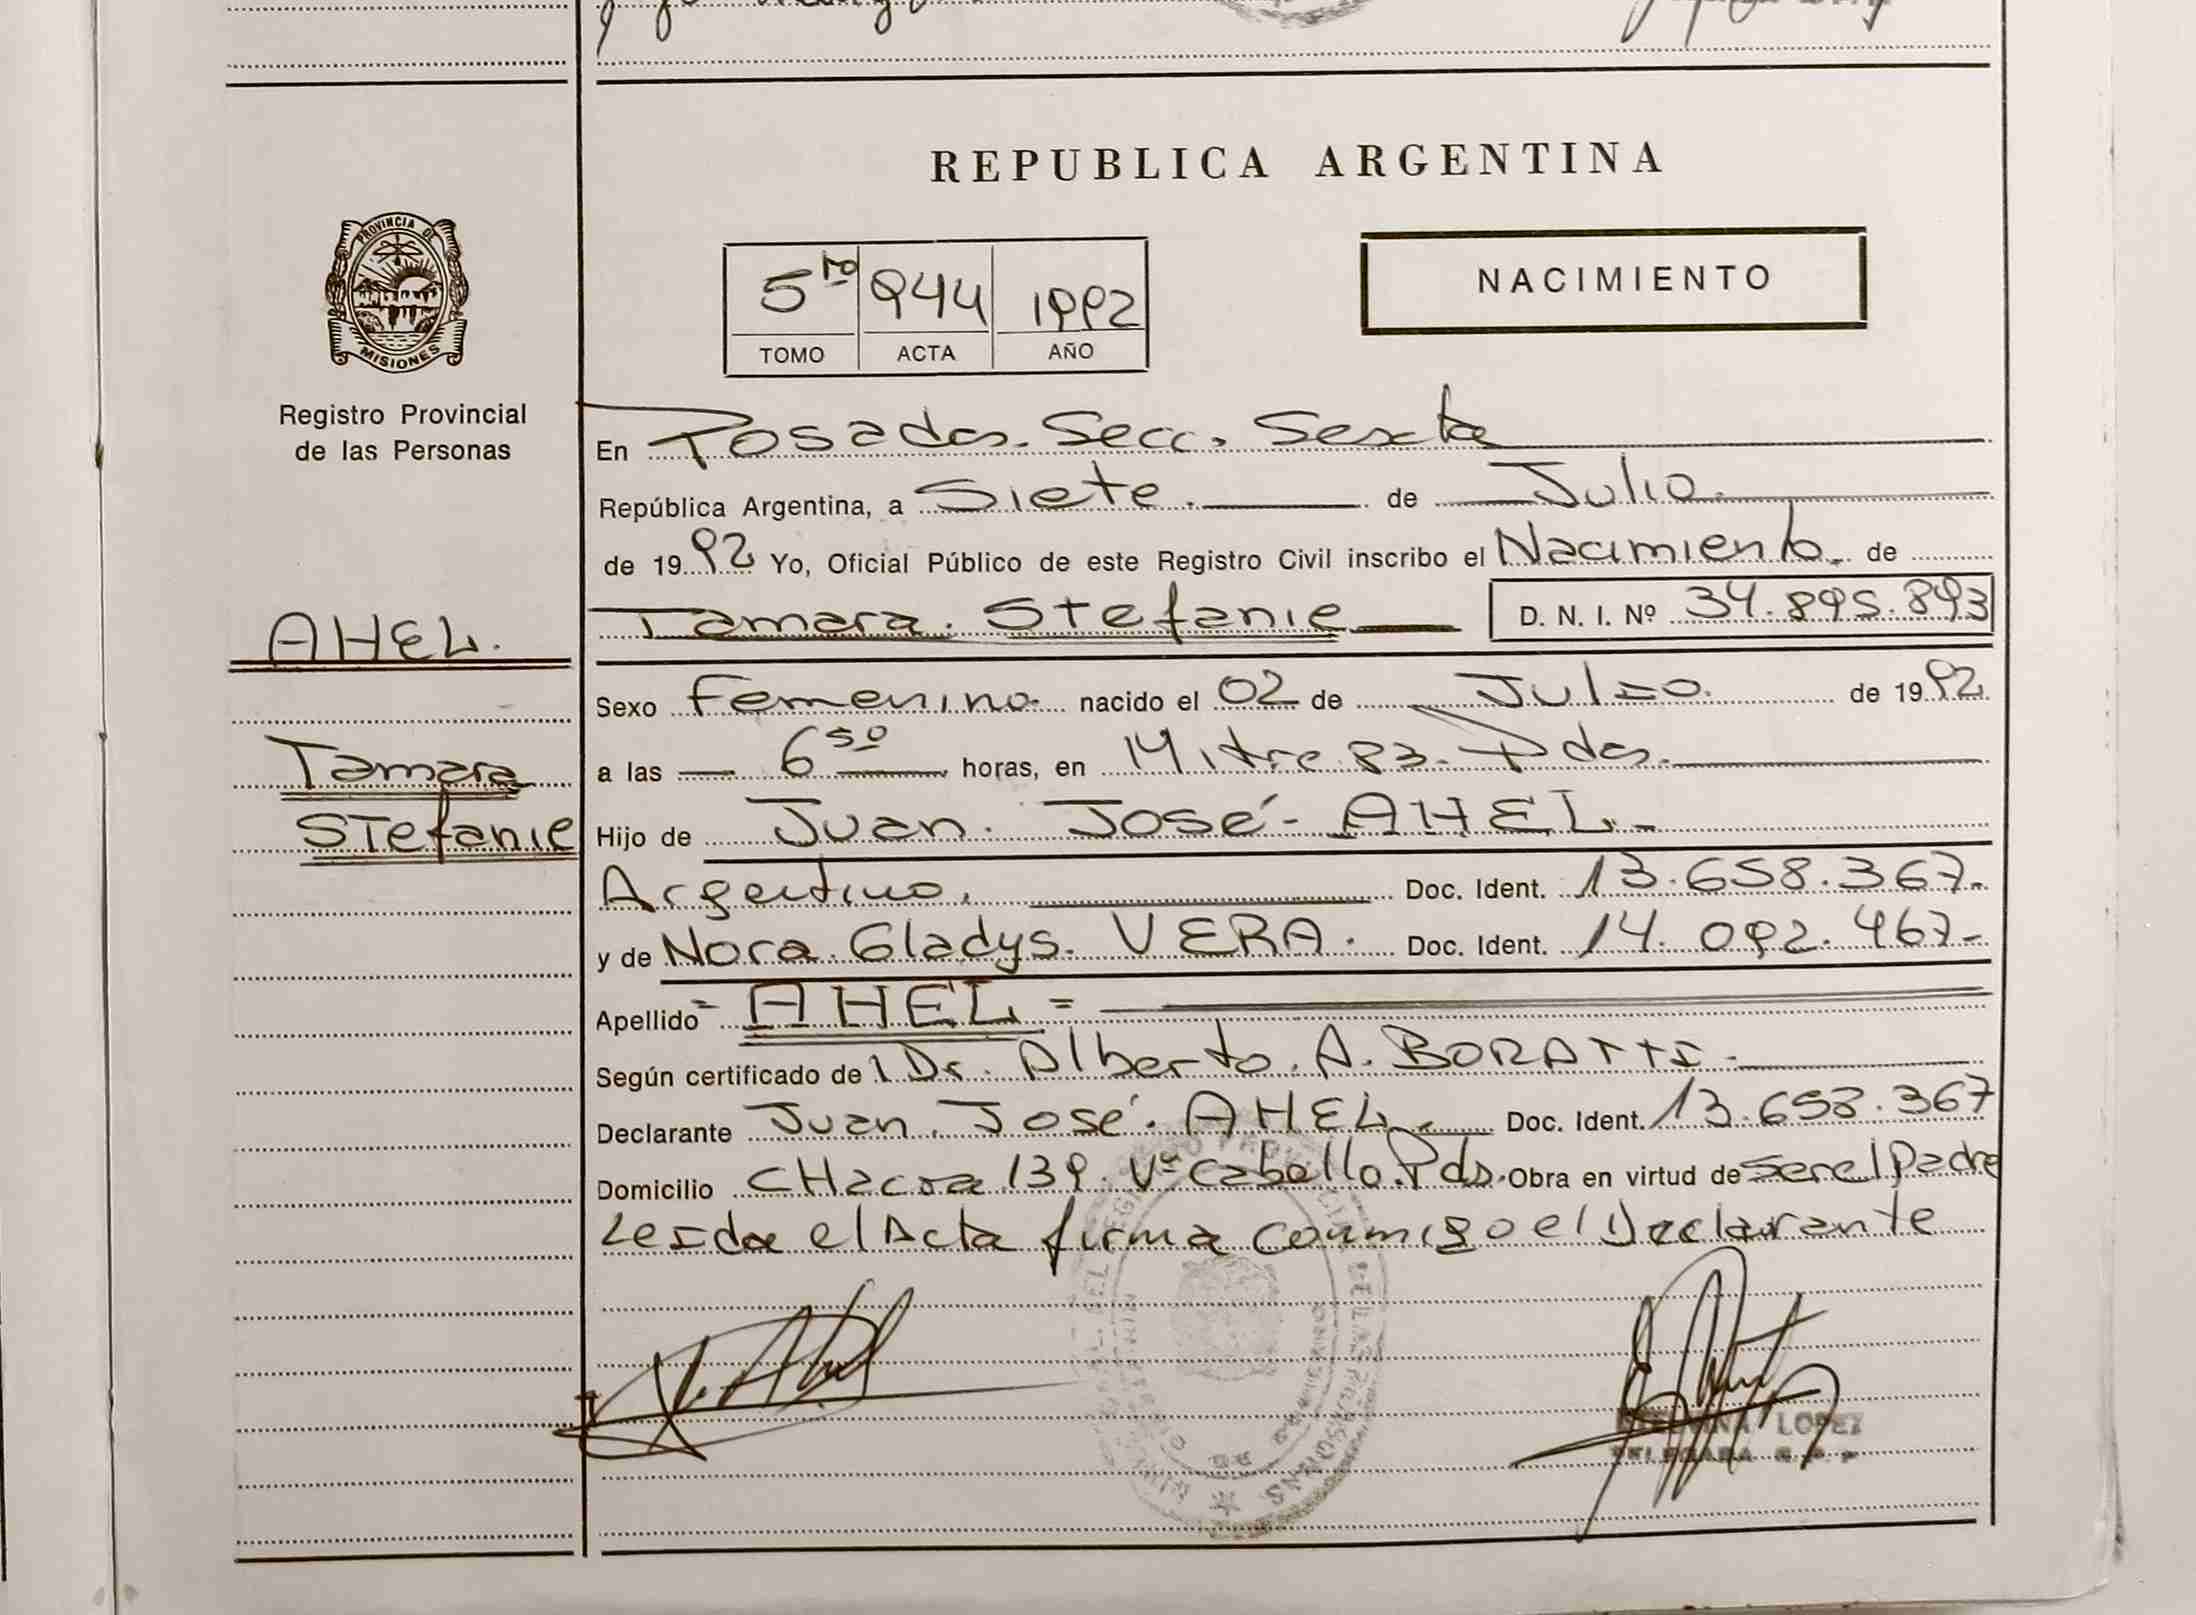 REPUBLICA ARGENTINA
PROVINCIA DE
MISIONES
Registro Provincial
de las Personas
5to 944 1992
TOMO ACTA AÑO
NACIMIENTO
En Posadas. Secc. Sexta
República Argentina, a Siete. de Julio.
de 1992 Yo, Oficial Público de este Registro Civil inscribo el Nacimiento. de
Tamara. Stefanie D. N. I. Nº 34.895.893
AHEL.
Tamara
Stefanie
Sexo Femenino. nacido el 02 de Julio. de 1992.
a las 6 50 horas, en Mitre 83. Pdas.
Hijo de Juan. José- AHEL.-
Argentino. Doc. Ident. 13.658.367.-
y de Nora. Gladys. VERA. Doc. Ident. 14.092.467-
Apellido = AHEL =
Según certificado de l Dr. Alberto. A. BORATTI.-
Declarante Juan. José. AHEL.- Doc. Ident. 13.658.367
Domicilio CHacra 139. Vª Cabello. Pds. Obra en virtud de ser el Padre
Leida el Acta firma conmigo el Declarante
J. Ahel
LOPEZ
DELEGADA